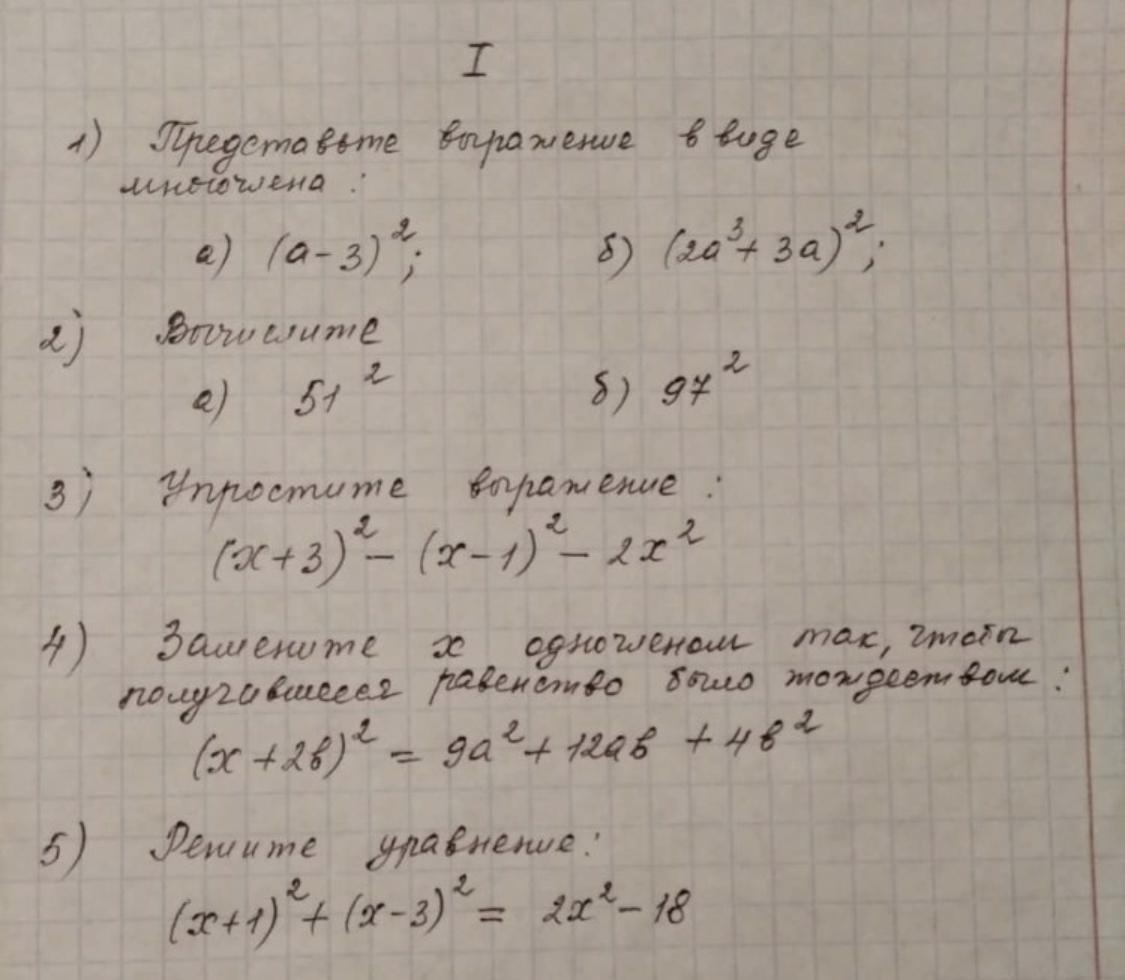 I
1) Представьте выражение в виде
многочлена :
а) (a - 3)²; б) (2a³ + 3a)²;
2) Вычислите
а) 51² б) 97²
3) Упростите выражение :
(x + 3)² - (x - 1)² - 2x²
4) Замените x одночленом так, чтобы
получившееся равенство было тождеством :
(x + 2в)² = 9a² + 12aв + 4в²
5) Решите уравнение :
(x + 1)² + (x - 3)² = 2x² - 18